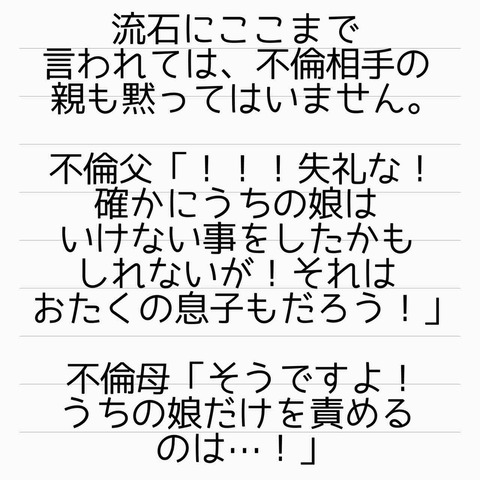 流石にここまで
言われては、不倫相手の
親も黙ってはいません。
不倫父「！！！失礼な！
確かにうちの娘は
いけない事をしたかも
しれないが！それは
おたくの息子もだろう！」
不倫母「そうですよ！
うちの娘だけを責める
のは…！」